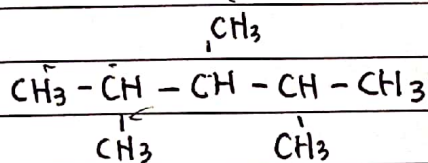 CH3
CH3 - CH - CH - CH - CH3
CH3 CH3